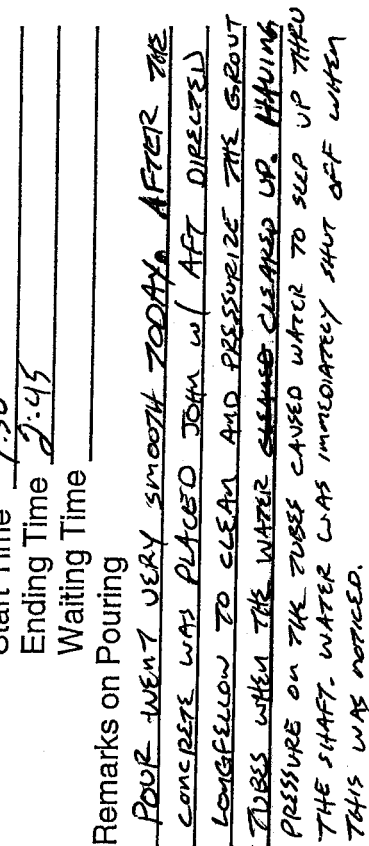 Start Time
Ending Time 2:45
Waiting Time
Remarks on Pouring
POUR WENT VERY SMOOTH TODAY. AFTER THE
CONCRETE WAS PLACED JOHN W/ AFT DIRECTED
LONGFELLOW TO CLEAN AND PRESSURIZE THE GROUT
TUBES WHEN THE WATER CLEARED UP. HAVING
PRESSURE ON THE TUBES CAUSED WATER TO SEEP UP THRU
THE SHAFT. WATER WAS IMMEDIATELY SHUT OFF WHEN
THIS WAS NOTICED.